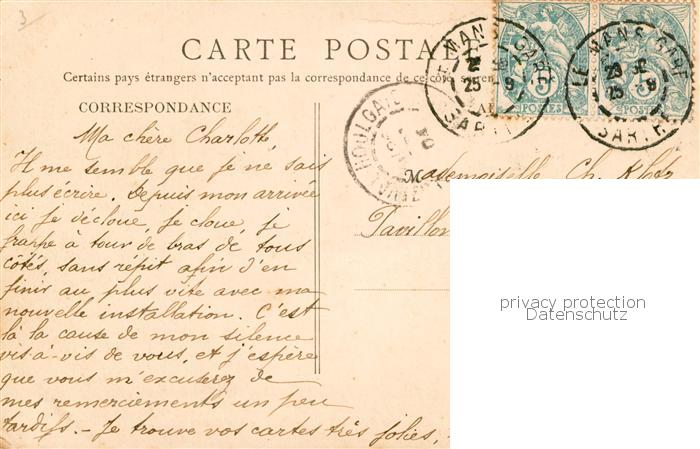 3
CARTE POSTALE
Certains pays étrangers n'acceptent pas la correspondance de ce côté
CORRESPONDANCE
LE MANS GARE
25
SARTHE
5
POSTES
LE MANS GARE
25
SARTHE
5
POSTES
HOULGATE
Ma chère Charlotte,
Il me semble que je ne sais
plus écrire. Depuis mon arrivée
ici je décloue, je cloue, je
frappe à tour de bras de tous
côtés, sans répit afin d'en
finir au plus vite avec ma
nouvelle installation. C'est
là la cause de mon silence
vis-à-vis de vous, et j'espère
que vous m'excuserez de
mes remerciements un peu
tardifs. - Je trouve vos cartes très jolies,
Mademoiselle Ch. Klotz
Pavillon
privacy protection
Datenschutz